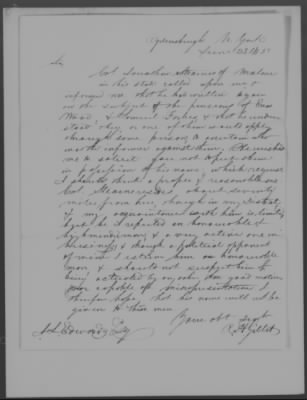 Ogdensburgh N. York
June 23 183
Sir
Col Jonathan Stearns of Malone
in this state called upon me &
informed me that he has written again
on the subject of the pensions of
Wood, & Samuel Forbes & that he under
stood they or one of them would apply
through some person to ascertain who
was the informer against them. He wished
me to solicit you not to put them
in possession of his name which request
I should think a proper & reasonable one
Col. Stearns resides about seventy
miles from here, though in my District
& my acquaintance with him is limited
but he is reputed an honourable &
and a very active one in
& though a political opponent
of mine I esteem him an honourable
man & should not suspect him of
being actuated by any other than good motives
nor capable of misrepresentation I
therefore hope that his name will not be
given to these men
Your obt Servt
R. H. Gillet
J L Edwards Esq